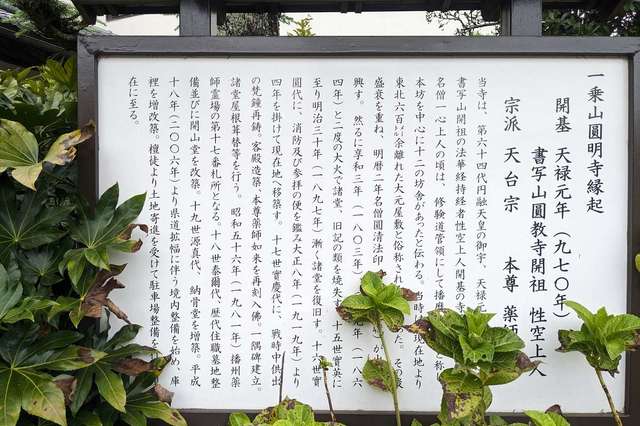 一乗山圓明寺縁起
開基 天禄元年(九七〇年)
書写山圓教寺開祖 性空上人
宗派 天台宗 本尊 薬師
当寺は、第六十四代円融天皇の御宇、天禄元
書写山開祖の法華経持経者性空上人開基の寺
名僧一心上人の頃は、修験道管領にして播
本坊を中心に十二の坊舎があったと伝わる。当時
東北六百㍍余離れた大元屋敷と俗称され た。その後
盛衰を重ね、明暦二年名僧圓清法印 から
興す。然るに享和三年(一八〇三年) (一八六
四年)と二度の大火で諸堂、旧記の類を焼失 十五世豪英に
至り明治三十年(一八九七年)漸く諸堂を復旧す。十六世
圓代に、消防及び参拝の便を鑑み大正八年(一九一九年)より
四年を掛けて現在地へ移築す。十七世實慶代に、戦時中供出
の梵鐘再鋳。客殿造築、本尊薬師如来を再刻入佛。一隅碑建立。
諸堂屋根葺替等を行う。昭和五十六年(一九八一年)播州薬
師霊場の第十七番札所となる。十八世泰爾代、歴代住職墓地整
備並びに開山堂を改築。十九世源真代、納骨堂を増築。平成
十八年(二〇〇六年)より県道拡幅に伴う境内整備を始め、庫
裡を増改築。檀徒より土地寄進を受けて駐車場整備を
在に至る。